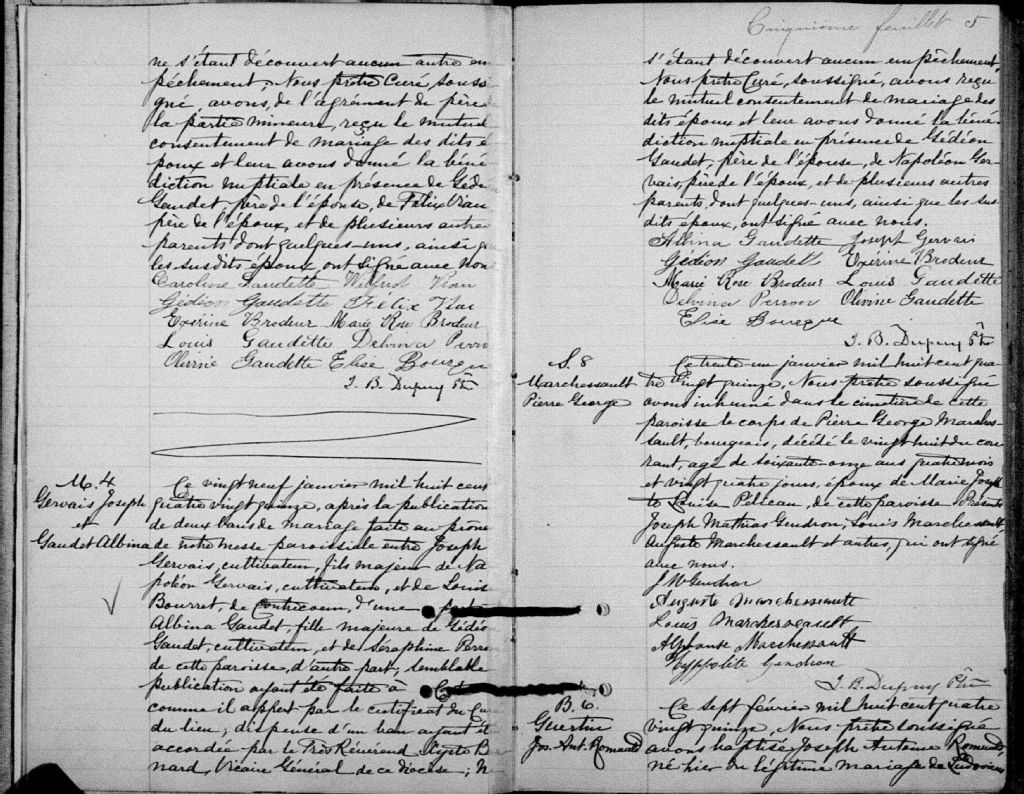 ne s'étant découvert aucun autre em
pêchement, Nous prêtre Curé, soussi
gné, avons, de l'agrément du père
la partie mineure, reçu le mutuel
consentement de mariage des dits é
poux et leur avons donné la béné
diction nuptiale en présence de Gédé
Gaudet, père de l'épouse, de Félix
père de l'époux, et de plusieurs autre
parents dont quelques-uns, ainsi q
les susdits époux, ont signé avec nous
Caroline Gaudette Wilfrid
Gédéon Gaudette Félix
Exérine Brodeur Marie Rose Brodeur
Louis Gaudette Delvina Perro
Olivine Gaudette Elise Bourgu
J. B. Dupuy Ptre
M. 4
Gervais Joseph
et
Gaudet Albina
Ce vingt neuf janvier mil huit cent
quatre vingt quinze, après la publication
de deux bans de mariage faite au prône
de notre messe paroissiale entre Joseph
Gervais, cultivateur, fils majeur de Na
poléon Gervais, cultivateur, et de Louise
Bourret, de Contrecoeur, d'une part
Albina Gaudet, fille majeure de Gédéo
Gaudet, cultivateur, et de Séraphine Perro
de cette paroisse, d'autre part; semblable
publication ayant été faite à
comme il appert par le certificat du Cu
du lieu; dispense d'un ban ayant ét
accordée par le Très Révérend Alyste Be
nard, Vicaire Général de ce diocèse; n
Cinquième feuillet 5
s'étant découvert aucun empêchement
Nous prêtre Curé, soussigné, avons reçu
le mutuel consentement de mariage des
dits époux et leur avons donné la béné
diction nuptiale en présence de Gédéon
Gaudet, père de l'épouse, de Napoléon Ger
vais, père de l'époux, et de plusieurs autres
parents, dont quelques-uns, ainsi que les sus
dits époux, ont signé avec nous.
Albina Gaudette Joseph Gervais
Gédéon Gaudette Exérine Brodeur
Marie Rose Brodeur Louis Gaudette
Delvina Perron Olivine Gaudette
Elise Bourgue
J. B. Dupuy Ptre
S. 8
Marchessault
Pierre George
Ce trente un janvier mil huit cent qua
tre vingt quinze, Nous prêtre soussigné
avons inhumé dans le cimetière de cette
paroisse le corps de Pierre George Marches
sault, bourgeois, décédé le vingt huit du cou
rant, agé de soixante-onze ans quatre mois
et vingt quatre jours, époux de Marie Joseph
te Louise Pélican, de cette paroisse. Présents
Joseph Mathias Gendron, Louis Marchessault,
Auguste Marchessault et autres, qui ont signé
avec nous.
J M Gendron
Auguste Marchessault
Louis Marchessault
Alphonse Marchessault
Hyppolite Gendron
J. B. Dupuy Ptre
B. 6.
Guertin
Jos. Ant. Romuald
Ce sept février mil huit cent quatre
vingt quinze, Nous prêtre soussigné
avons baptisé Joseph Antoine Romuald,
né hier du légitime mariage de Ludovic